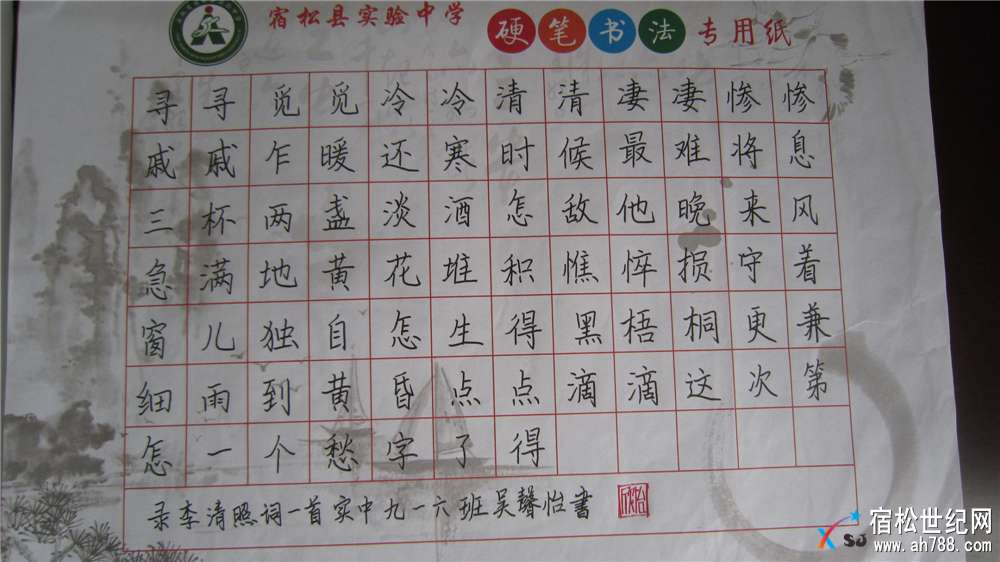 宿松县实验中学
硬笔书法专用纸
寻寻觅觅冷冷清清凄凄惨惨
戚戚乍暖还寒时候最难将息
三杯两盏淡酒怎敌他晚来风
急满地黄花堆积憔悴损守着
窗儿独自怎生得黑梧桐更兼
细雨到黄昏点点滴滴这次第
怎一个愁字了得
录李清照词一首实中九一六班吴馨怡书
宿松世纪网
www.ah788.com